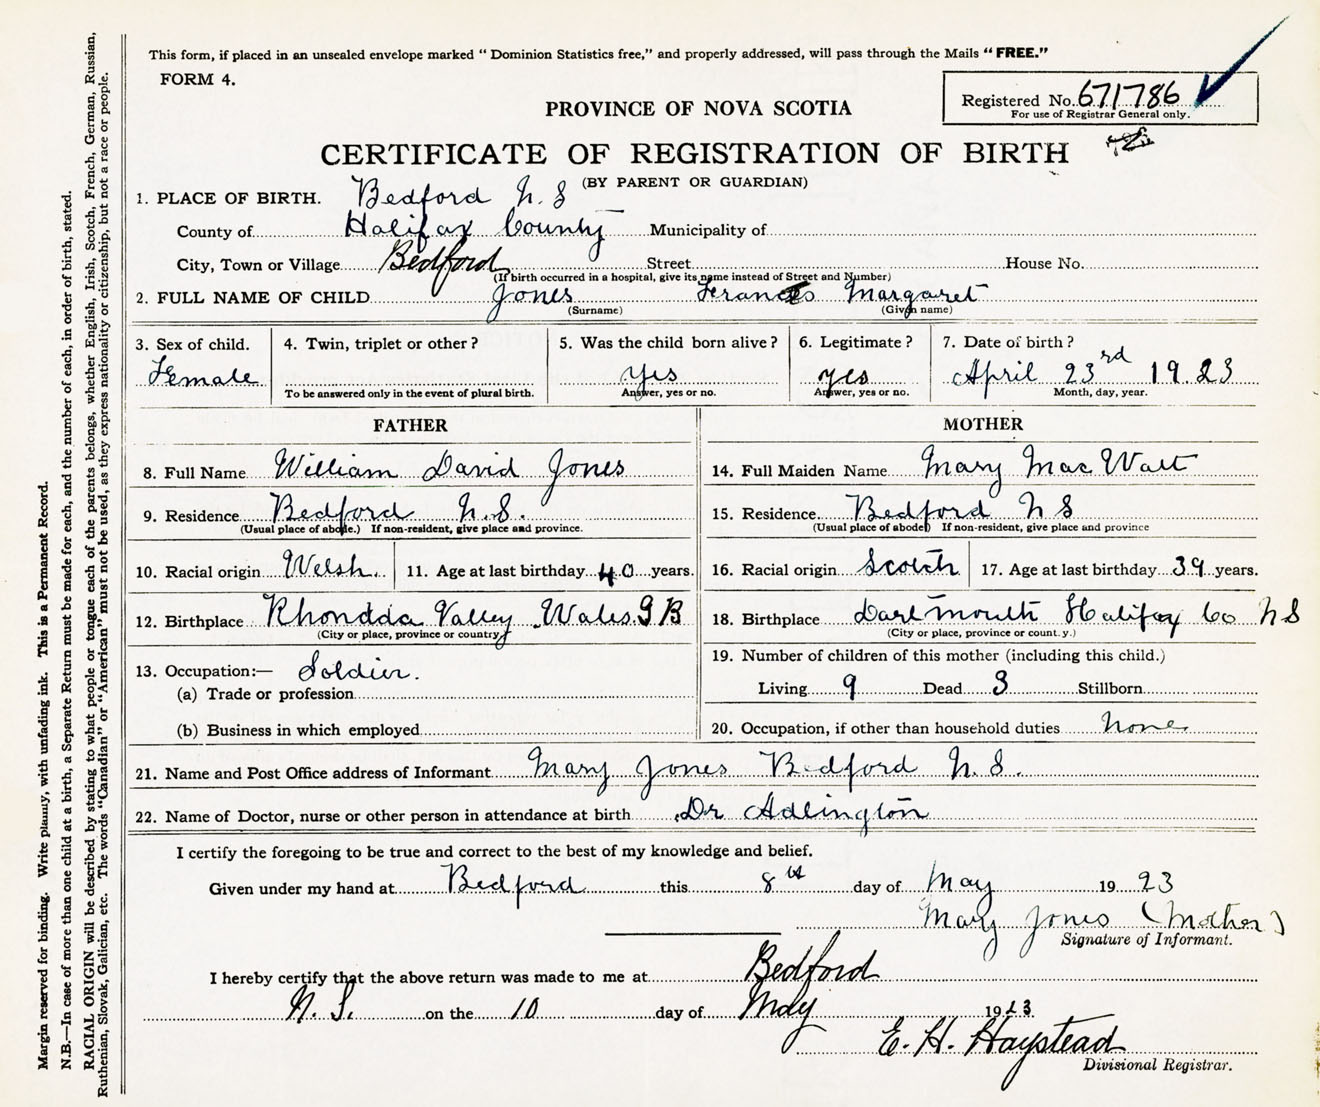 This form, if placed in an unsealed envelope marked “ Dominion Statistics free,” and properly addressed, will pass through the Mails “ FREE.”
FORM 4.
Registered No. 671786
For use of Registrar General only.
PROVINCE OF NOVA SCOTIA
CERTIFICATE OF REGISTRATION OF BIRTH
(BY PARENT OR GUARDIAN)
1. PLACE OF BIRTH. Bedford N. S
County of Halifax County Municipality of
City, Town or Village Bedford Street House No.
(If birth occurred in a hospital, give its name instead of Street and Number)
2. FULL NAME OF CHILD Jones Frances Margaret
(Surname) (Given name)
3. Sex of child. 4. Twin, triplet or other ? 5. Was the child born alive ? 6. Legitimate ? 7. Date of birth ?
Female yes yes April 23rd 1923
To be answered only in the event of plural birth. Answer, yes or no. Answer, yes or no. Month, day, year.
FATHER MOTHER
8. Full Name William David Jones 14. Full Maiden Name Mary Mac Watt
9. Residence Bedford N.S. 15. Residence Bedford N S
(Usual place of abode.) If non-resident, give place and province. (Usual place of abode) If non-resident, give place and province
10. Racial origin Welsh. 11. Age at last birthday 40 years. 16. Racial origin Scotch 17. Age at last birthday 39 years.
12. Birthplace Rhondda Valley Wales. GB 18. Birthplace Dartmouth Halifax Co N S
(City or place, province or country) (City or place, province or count.y.)
13. Occupation:— Soldier. 19. Number of children of this mother (including this child.)
(a) Trade or profession Living 9 Dead 3 Stillborn
(b) Business in which employed 20. Occupation, if other than household duties none
21. Name and Post Office address of Informant Mary Jones Bedford N. S.
22. Name of Doctor, nurse or other person in attendance at birth Dr Adlington
I certify the foregoing to be true and correct to the best of my knowledge and belief.
Given under my hand at Bedford this 8th day of May 1923
Mary Jones (Mother)
Signature of Informant.
I hereby certify that the above return was made to me at Bedford
N. S. on the 10 day of May 1923
E. H. Haystead
Divisional Registrar.
Margin reserved for binding. Write plainly, with unfading ink. This is a Permanent Record.
N.B.—In case of more than one child at a birth, a Separate Return must be made for each, and the number of each, in order of birth, stated.
RACIAL ORIGIN will be described by stating to what people or tongue each of the parents belongs, whether English, Irish, Scotch, French, German, Russian,
Ruthenian, Slovak, Galician, etc. The words “Canadian” or “American” must not be used, as they express nationality or citizenship, but not a race or people.